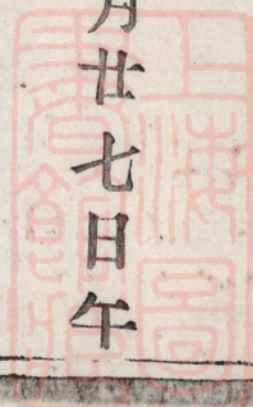 月廿七日午
上海圖
書館藏